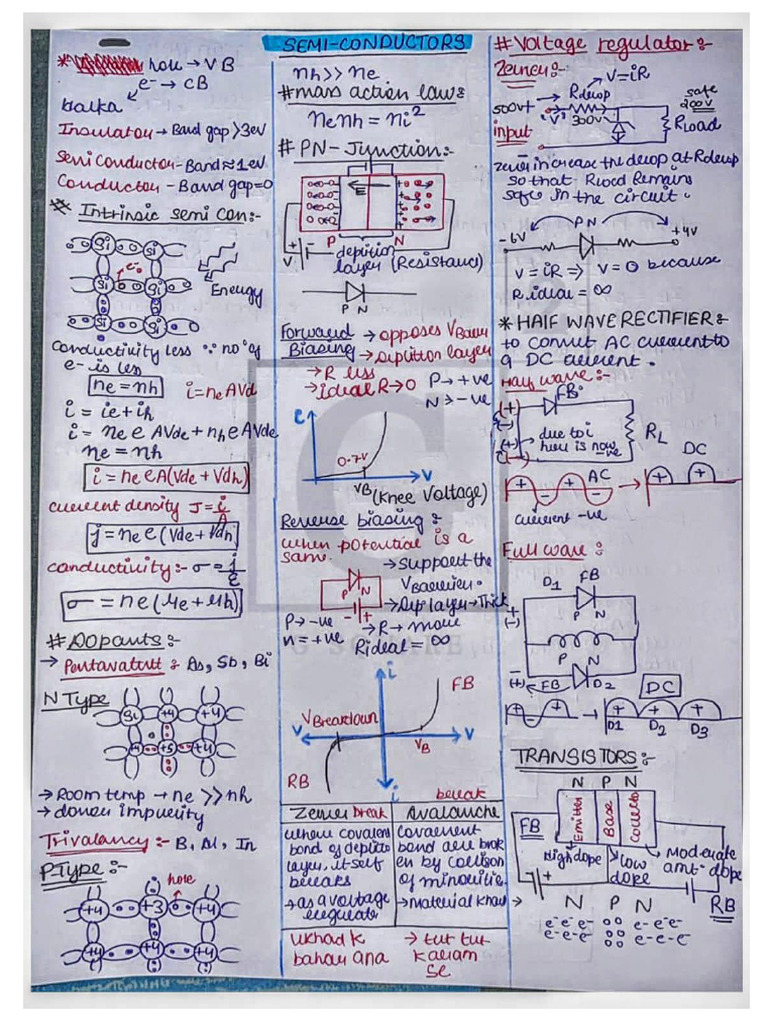 SEMI-CONDUCTORS
hole → VB
e⁻ → CB
halka
Insulator → Band gap >3eV
Semi Conductor - Band ≈ 1 eV
Conductor - Band gap=0
* Intrinsic semi con:-
Si Si
e⁻
Si Si
Energy
Si Si
Conductivity less ∵ no of
e⁻ is less
ne = nh
i = neAVd
i = ie+ih
i = ne e AVde + nh e AVde
ne = nh
i = ne eA(Vde + Vdh)
current density J = i/A
j = ne e (Vde + Vdh)
conductivity:- σ = j/E
σ = ne(μe + μh)
# Dopants:-
→ Pentavatett : As, Sb, Bi
N Type
Si +4 +4
+4 +5 +4
→ Room temp → ne >> nh
→ doner impurity
Trivalancy:- B, Al, In
P Type:-
hole
+4 +3 +4
+4 +4 +4
nh>> ne
# mass action law:
ne nh = ni²
# PN-Junction:-
E
P N
V + -
deplition
layer (Resistance)
P N
Forward Biasing
→ opposes VBarr
→ Deplition layer
→ R less
→ ideal R→0
P→+ve
N→-ve
0.7V
V
VB (Knee Voltage)
Reverse biasing:
when potential is a
same.
→ Support the
VBarrier.
P N
- +
→ Dep layer → Thick
P→-ve
n=+ve
→ R→ more
Rideal = ∞
i
FB
VBreakdown
V V
VB
RB
i
break
Zener Break
Avalanche
where covalent
bond of deplito
layer, itself
breaks
→ as a voltage
regulate
Covarment
bond are brok
en by collison
of minoritie.
→ Material khas
ukhad k
bahar ana
→ tut tut
karam
se
# Voltage regulator:-
Zener:-
V=iR
Rdrop
safe
200V
500V+
"V"
300V
input
RLoad
zener increase the drop at Rdrop
so that Rload Remains
safe in the circuit.
P N
-6V +4V
V = iR ⇒ V = 0 because
R ideal = ∞
* HAIF WAVE RECTIFIER:
to convert AC current to
a DC current.
Half wave:-
FB
(+)
(-)
due to i
here is now
-ve
(+)
(-)
RL
DC
AC
+ + → + +
- -
current -ve
Full wave:
D1 FB
+
(-)
P N
P N
-
(+)
FB D2
DC
→ + + +
D1 D2 D3
TRANSISTORS:-
N P N
FB
Emitter
Base
Collector
High dope
Low
dope
Moderate
amt dope
+
RB
N P N
e⁻ e⁻ e⁻ e⁻ e⁻ e⁻
e⁻ e⁻ e⁻ e⁻ e⁻ e⁻